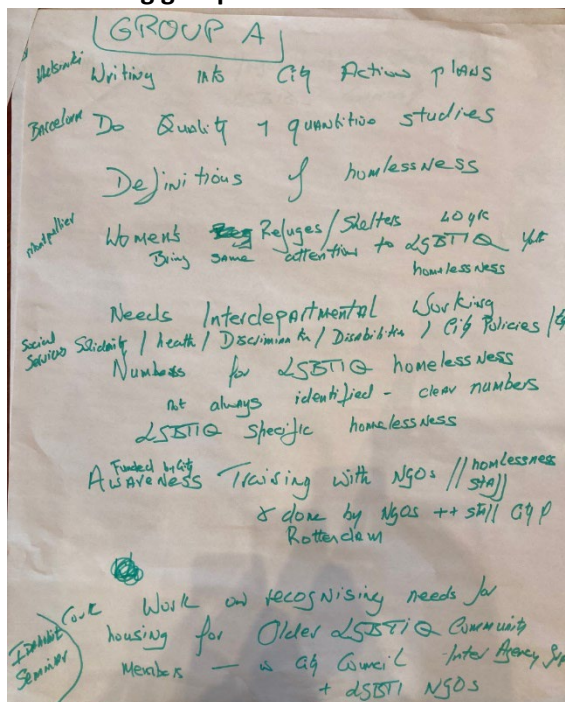 GROUP A
Helsinki Writing into City Action plANS
Barcelona Do Quality & quantitive studies
Definitions of homlessNess
Montpellier Women's Refuges/Shelters
Bring same attention to LGBTIQ
homelessness
Needs Interdepartmental Working
Social Services Solidarity / health / Discrimination / Disabilities / City Policies /
Numbers for LGBTIQ homelessness
not always identified - clear numbers
LGBTIQ specific homelessness
Funded by City
AWAReNess Training with NGOs // homlessness
staff
& done by NGOs ++ still
Rotterdam
Cork Work on recognising needs for
housing for Older LGBTIQ Community
Members — in City Council Inter Agency
+ LGBTI NGOs
Seminar